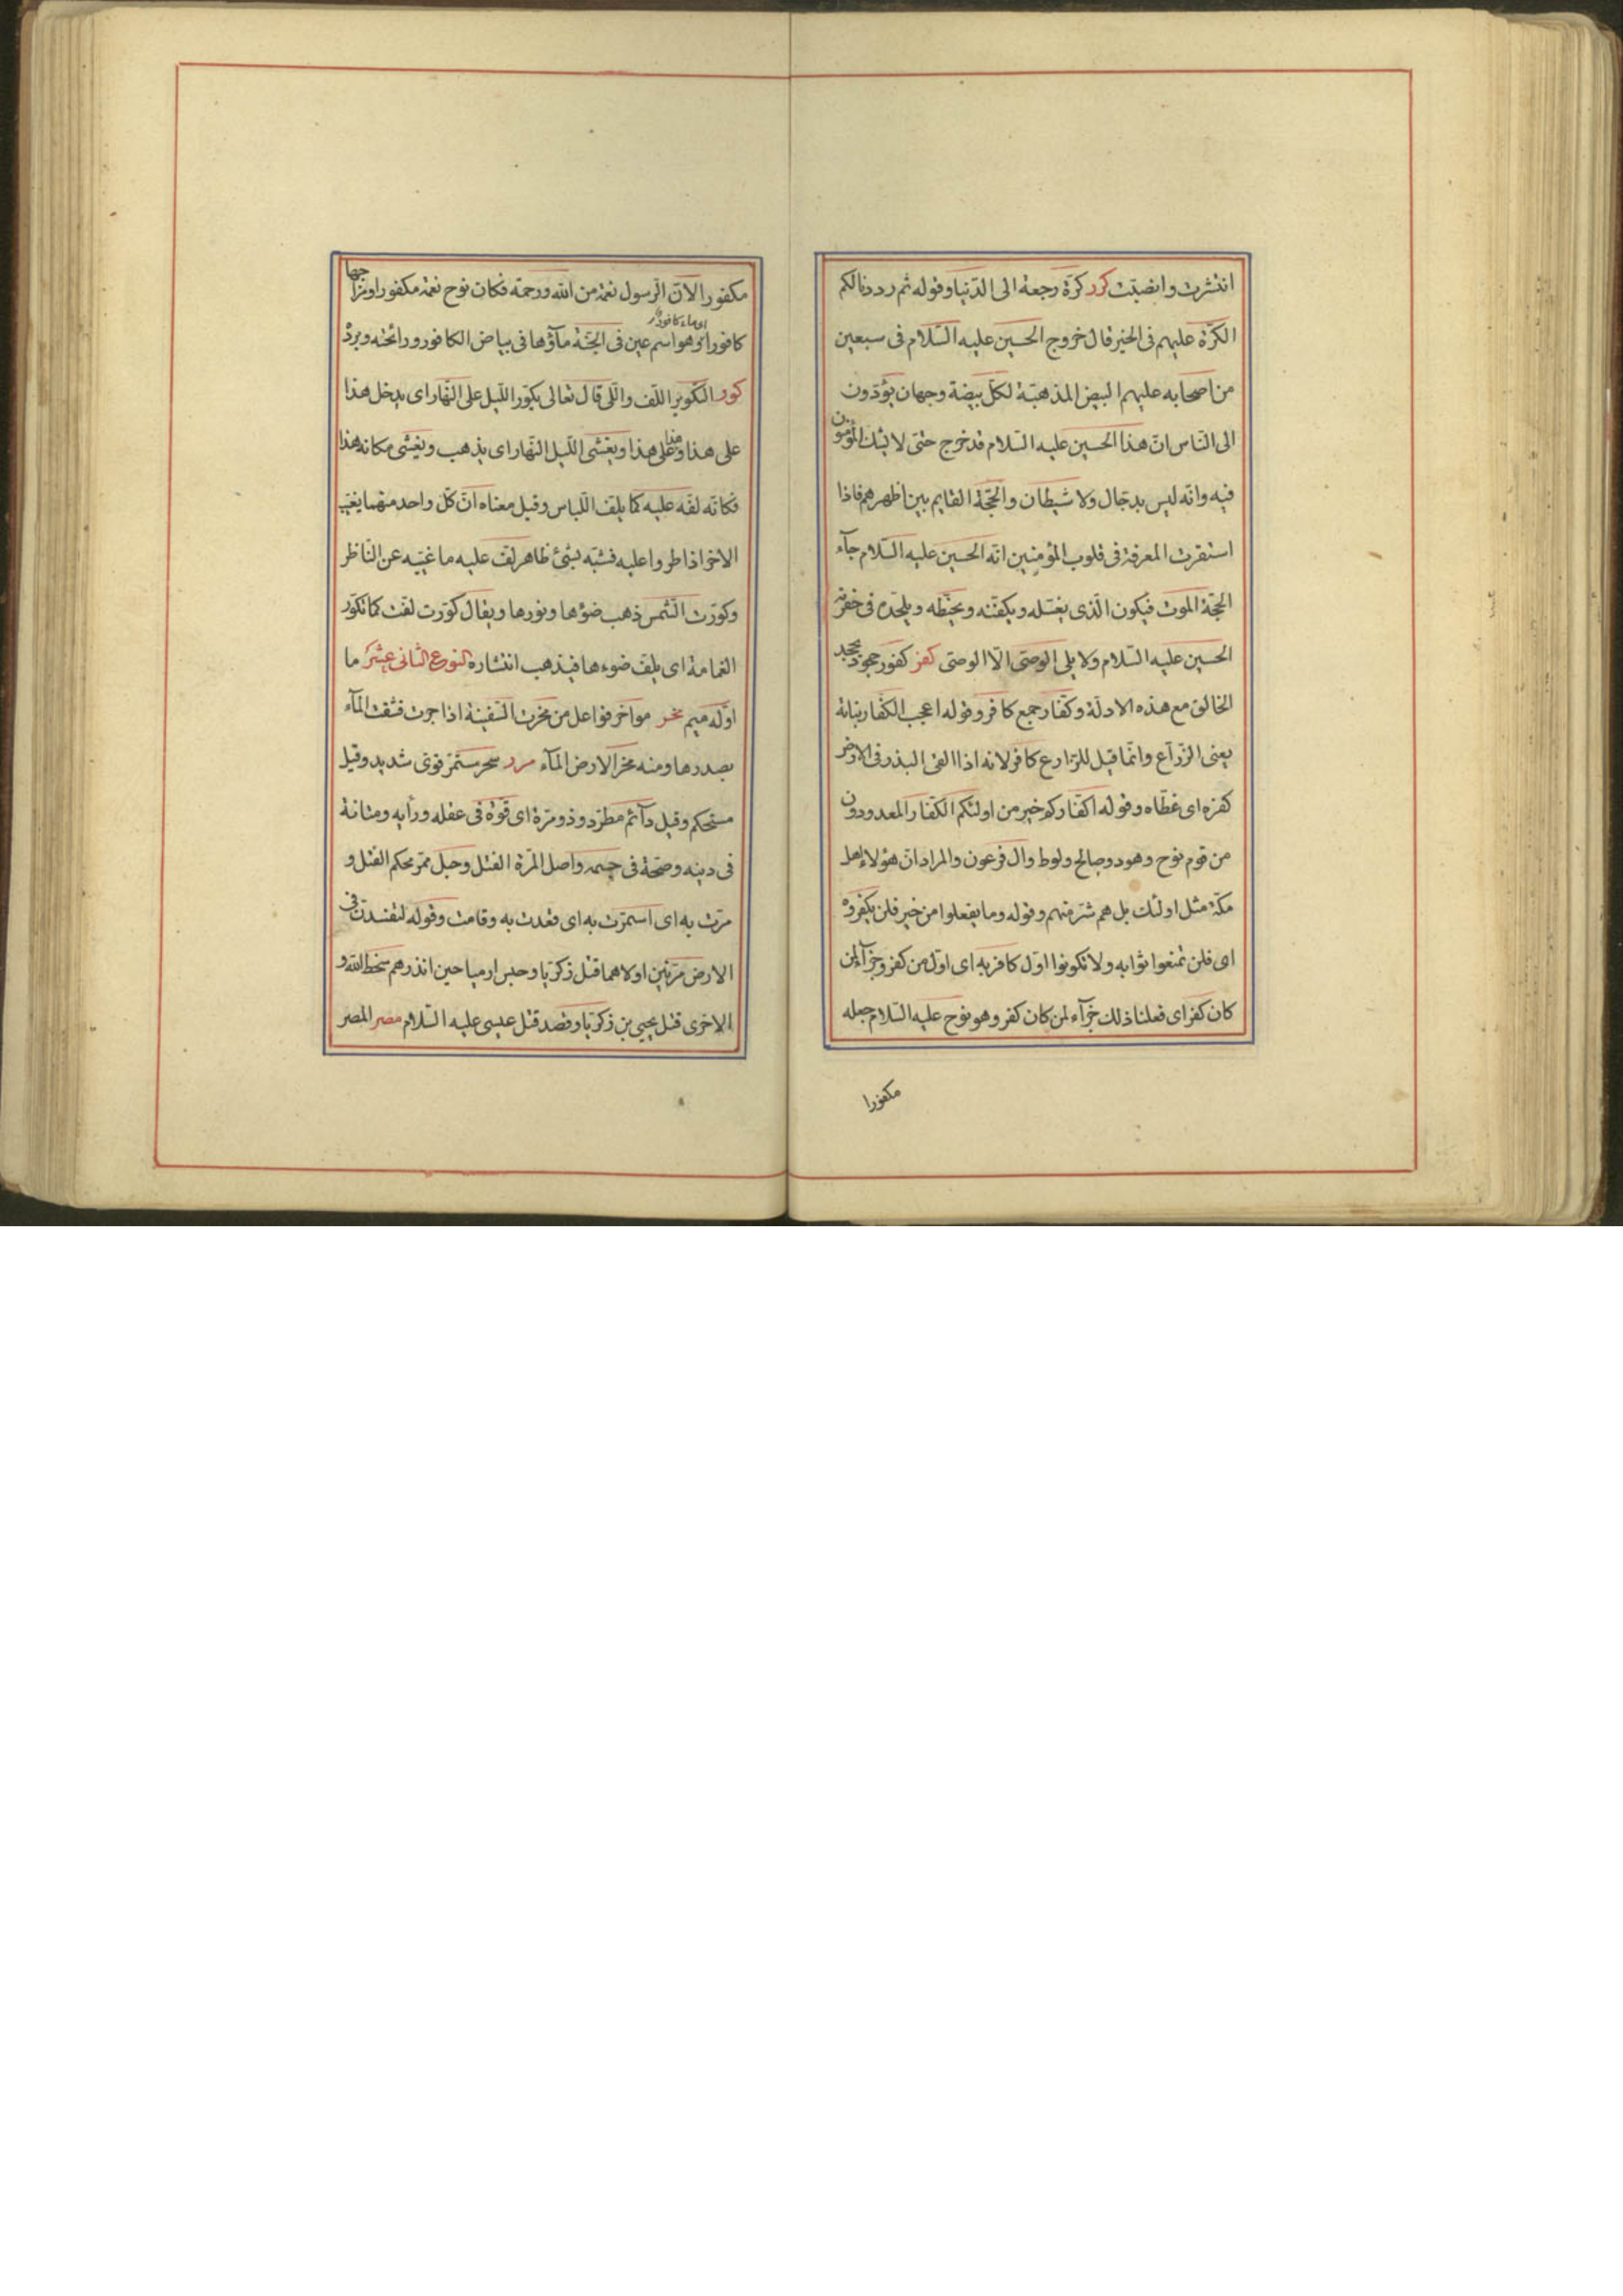 انتثرت وانصبّت كرر كرّة رجعة الى الدّنيا وقوله ثم رددنا لكم
الكرّة عليهم فى الخبر قال خروج الحسين عليه السّلام فى سبعين
من اصحابه عليهم البيض المذهبّة لكلّ بيضة وجهان يؤدّون
الى النّاس انّ هذا الحسين عليه السّلام قد خرج حتى لا يشك المؤمنون
فيه وانّه ليس بدجّال ولا شيطان والحجّة القايم بين اظهرهم فاذا
استقرت المعرفة فى قلوب المؤمنين انّه الحسين عليه السّلام جآء
الحجّة الموت فيكون الّذى يغسّله ويكفّنه ويحنّطه ويلحّده فى حفرته
الحسين عليه السّلام ولا يلى الوصىّ الّا الوصىّ كفر كفور جحود يجحد
الخالق مع هذه الادلّة وكفّار جمع كافر وقوله اعجب الكفّار نباته
يعنى الزّرّاع وانّما قيل للزّارع كافر لانه اذا القى البذر فى الارض
كفره اى غطّاه وقوله اكفّاركم خير من اولئكم الكفّار المعدودون
من قوم نوح وهود وصالح ولوط وال فرعون والمراد انّ هؤلاء اهل
مكّة مثل اولئك بل هم شرّ منهم وقوله وما يفعلوا من خير فلن يكفروه
اى فلن تمنعوا ثوابه ولا تكونوا اوّل كافر به اى اوّل من كفر وجزآء لمن
كان كفر اى فعلنا ذلك جزآء لمن كان كفر وهو نوح عليه السّلام جعله
مكفورا
مكفورا لانّ الرّسول نعمة من اللّه ورحمة فكان نوح نعمة مكفورا ومزاجها
اى ماء كافور
كافورا وهو اسم عين فى الجنّة مآؤها فى بياض الكافور ورائحته وبرده
كور التكوير اللّف واللّى قال تعالى يكوّر اللّيل على النّهار اى يدخل هذا
على هذا وهذا على هذا ويغشى اللّيل النّهار اى يذهب ويغشى مكانه هذا
فكانّه لفّه عليه كما يلفّ اللّباس وقيل معناه انّ كلّ واحد منهما يغيّب
الاخر اذا طروا عليه فشبّه بشئ ظاهر لفّ عليه ما غيّبه عن النّاظر
وكوّرت الشّمس ذهب ضؤها ونورها ويقال كوّرت لفّت كما تكوّر
الغمامة اى يلفّ ضوءها فيذهب انتشاره النوع الثّانى عشر ما
اوّله ميم مخر مواخر فواعل من مخرت السّفينة اذا جرت فشقت المآء
بصدرها ومنه مخر الارض المآء مرر سحر مستمرّ قوىّ شديد وقيل
مستحكم وقيل دآئم مطّرد وذو مرّة اى قوّة فى عقله ورأيه ومتانة
فى دينه وصحّة فى جسمه واصل المرّة الفتل وحبل ممرّ محكم الفتل و
مرّت به اى استمرّت به اى قعدت به وقامت وقوله لتفسدنّ فى
الارض مرّتين اولاهما قتل زكريّا وحبس ارميا حين انذرهم سخط اللّه و
الاخرى قتل يحيى بن زكريّا وقصد قتل عيسى عليه السّلام مصر المصر